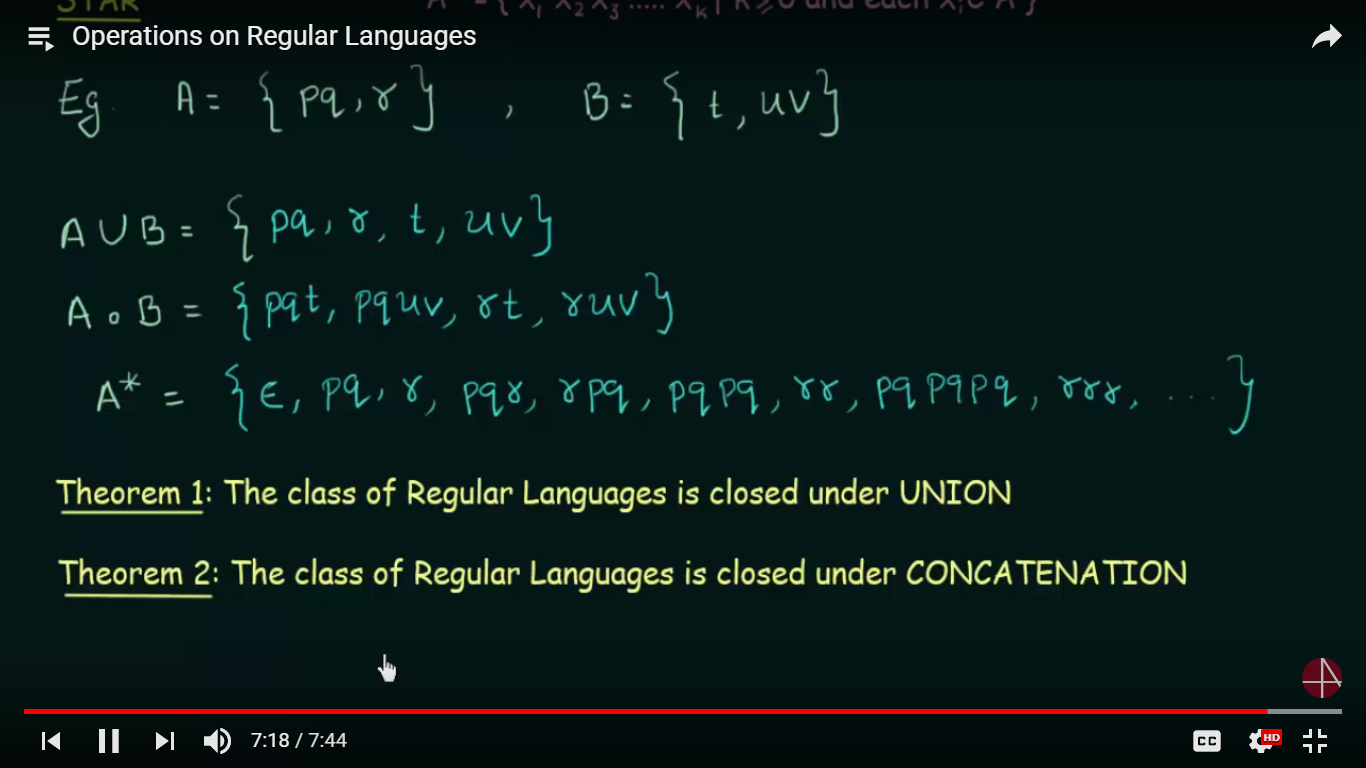 STAR A* = { x₁ x₂ x₃ ..... xₖ | k ≥ 0 and each xᵢ ∈ A }
Operations on Regular Languages
Eg. A = { pq, r } , B = { t, uv }
A ∪ B = { pq, r, t, uv }
A o B = { pqt, pquv, rt, ruv }
A* = { ε, pq, r, pqr, rpq, pqpq, rr, pqpqpq, rrr, .... }
Theorem 1: The class of Regular Languages is closed under UNION
Theorem 2: The class of Regular Languages is closed under CONCATENATION
7:18 / 7:44
CC
HD